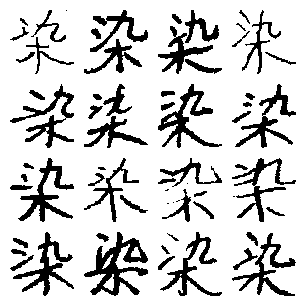 染染染染
染染染染
染染染染
染染染染